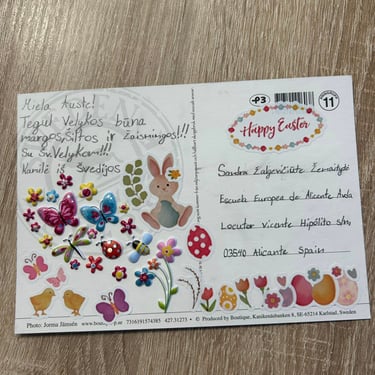 Miela Auste!
Tegul Velykos būna
margos, Šiltos ir Žaismingos!!!
Su Šv. Velykom!!!
Kamilė iš Švedijos
-P3
11
Happy Easter
Sandra Žalgevičiūtė Žemaitytė
Escuela Europea de Alicante Aula
Locutor Vicente Hipólito s/n
03540 Alicante Spain
Photo: Jorma Jämsén
7316191574385 427.31273 - © Produced by Boutique, Kanikenäsbanken 8, SE-65214 Karlstad, Sweden